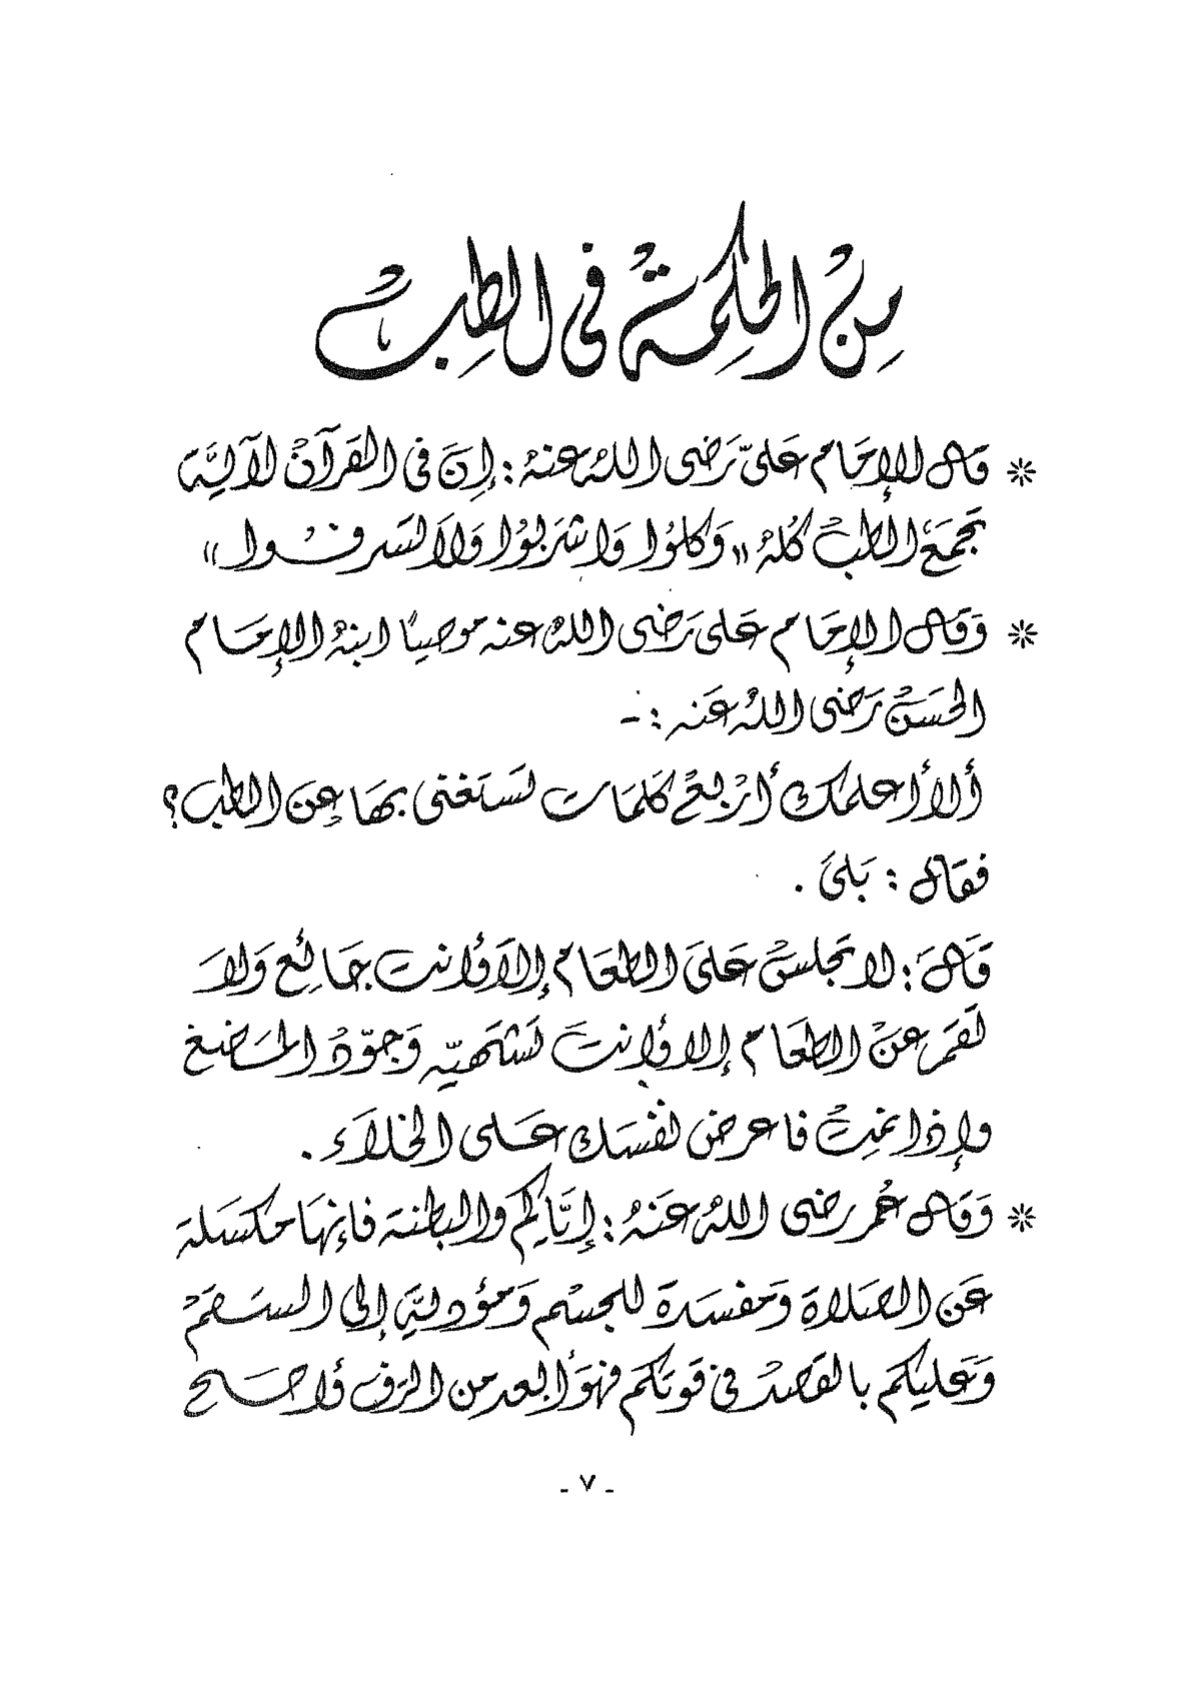 مِنْ الحِكمَةُ فى الطِبْ
* قال الإِمَام عَلىّ رَضى اللهُ عنهُ : إِنَ فى القرآنْ لآيَة
تجمَعَ الطبْ كُلهُ «وَكلوُا وَاشرَبوُا وَلاَ تسَرفْوا»
* وَقال الإِمَام عَلى رَضى اللهُ عنه موصيًا ابنهُ الإِمَام
الحَسَنْ رَضى اللهُ عَنه : -
ألا أعلمك أرْبعْ كَلمَات تسَتَغنى بهَا عِن الطب ؟
فقال : بَلىَ .
قَالَ : لا تجَلسْ عَلىَ الطعَام إلاَ وأنت جَائع وَلاَ
تقَمَ عَنْ الطعَام إلا وأنتَ تشَتهَيّه وَجوّدْ المضَغ
وإذا نمتْ فاعرض نفْسَك عَلى الخلاَء .
* وَقال عُمر رضى اللهُ عَنهُ : إيَّاكِم والبطنة فإنهَا مكسَلة
عَن الصَلاة وَمفسَدة للجسْم وَمؤديَةِ إلى السَقمْ
وَعَليكَم بالقصَدْ فى قوتكَم فهوَ أبعد من السَرف وأصَح
- ٧ -